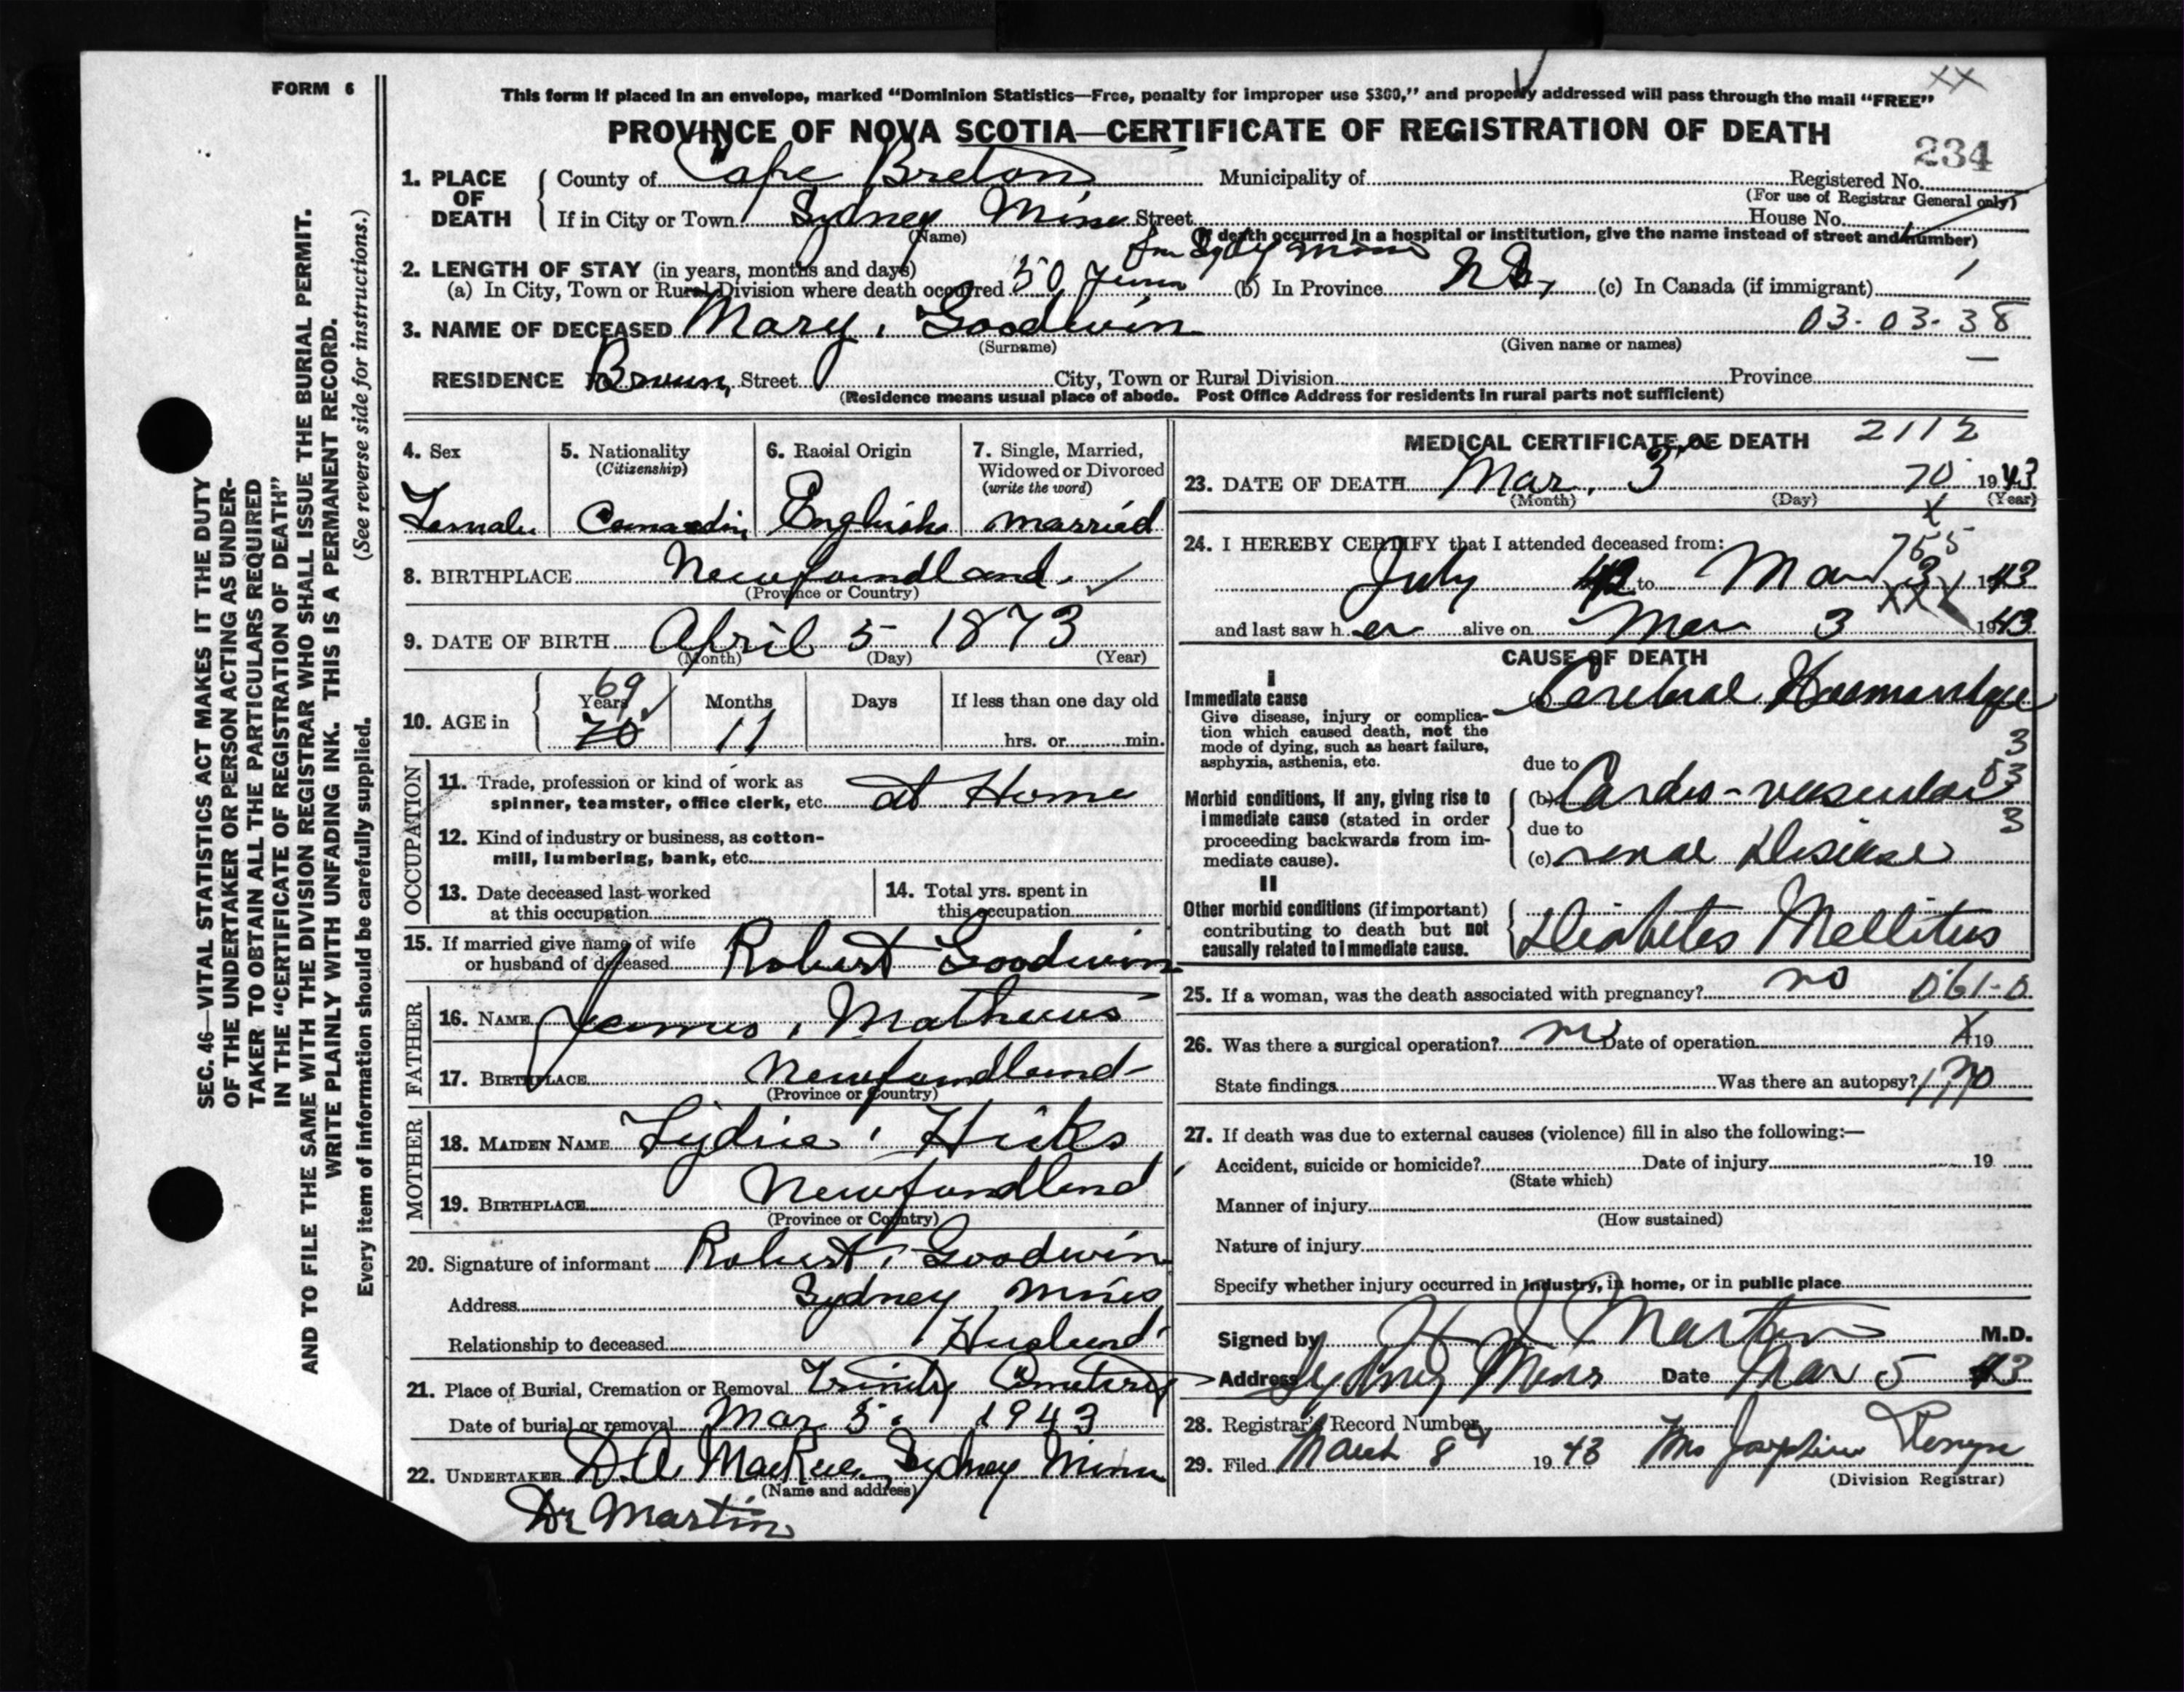 FORM 6
This form if placed in an envelope, marked "Dominion Statistics—Free, penalty for improper use $300," and properly addressed will pass through the mail "FREE"
XX
PROVINCE OF NOVA SCOTIA—CERTIFICATE OF REGISTRATION OF DEATH
234
1. PLACE OF DEATH
County of Cape Breton Municipality of Registered No.
(For use of Registrar General only)
If in City or Town Sydney Mines Street House No.
(Name) (If death occurred in a hospital or institution, give the name instead of street and number)
2. LENGTH OF STAY (in years, months and days)
(a) In City, Town or Rural Division where death occurred 50 (b) In Province N.S. (c) In Canada (if immigrant)
3. NAME OF DECEASED Mary, Goodwin 03-03-38
(Surname) (Given name or names)
RESIDENCE Street City, Town or Rural Division Province
(Residence means usual place of abode. Post Office Address for residents in rural parts not sufficient)
4. Sex 5. Nationality (Citizenship) 6. Racial Origin 7. Single, Married, Widowed or Divorced (write the word)
Female Canadin English married
8. BIRTHPLACE Newfoundland
(Province or Country)
9. DATE OF BIRTH April 5 1873
(Month) (Day) (Year)
10. AGE in Years Months Days If less than one day old
69
70 11 hrs. or min.
OCCUPATION
11. Trade, profession or kind of work as
spinner, teamster, office clerk, etc. at Home
12. Kind of industry or business, as cotton-
mill, lumbering, bank, etc.
13. Date deceased last worked
at this occupation
14. Total yrs. spent in
this occupation
15. If married give name of wife
or husband of deceased Robert Goodwin
FATHER
16. NAME James, Mathews
17. BIRTHPLACE Newfoundland
(Province or Country)
MOTHER
18. MAIDEN NAME Lydia Hicks
19. BIRTHPLACE Newfundland
(Province or Country)
20. Signature of informant Robert Goodwin
Address Sydney Mines
Relationship to deceased Husband
21. Place of Burial, Cremation or Removal Trinity Cemetery
Date of burial or removal Mar 5. 1943
22. UNDERTAKER D.A. MacRae, Sydney Mines
(Name and address)
Dr Martin
MEDICAL CERTIFICATE OF DEATH 2112
23. DATE OF DEATH Mar. 3 70 1943
(Month) (Day) (Year)
24. I HEREBY CERTIFY that I attended deceased from:
755
July 42 to Mar 3 1943
and last saw her alive on Mar 3 1943
CAUSE OF DEATH
I
Immediate cause Cerebral
Give disease, injury or complica-
tion which caused death, not the
mode of dying, such as heart failure,
asphyxia, asthenia, etc.
due to
Morbid conditions, if any, giving rise to
immediate cause (stated in order
proceeding backwards from im-
mediate cause).
(b) Cardio-vascular
due to
(c) renal Disease
II
Other morbid conditions (if important)
contributing to death but not
causally related to immediate cause.
Diabetes Mellitus
25. If a woman, was the death associated with pregnancy? no 061-0
26. Was there a surgical operation? no Date of operation 19
State findings Was there an autopsy? no
27. If death was due to external causes (violence) fill in also the following:—
Accident, suicide or homicide? Date of injury 19
(State which)
Manner of injury
(How sustained)
Nature of injury
Specify whether injury occurred in industry, in home, or in public place
Signed by Martin M.D.
Address Sydney Mines Date Mar 5 43
28. Registrar's Record Number
29. Filed March 8th 1943 Mrs Josephine
(Division Registrar)
SEC. 46—VITAL STATISTICS ACT MAKES IT THE DUTY
OF THE UNDERTAKER OR PERSON ACTING AS UNDER-
TAKER TO OBTAIN ALL THE PARTICULARS REQUIRED
IN THE "CERTIFICATE OF REGISTRATION OF DEATH"
AND TO FILE THE SAME WITH THE DIVISION REGISTRAR WHO SHALL ISSUE THE BURIAL PERMIT.
WRITE PLAINLY WITH UNFADING INK. THIS IS A PERMANENT RECORD.
Every item of information should be carefully supplied. (See reverse side for instructions.)